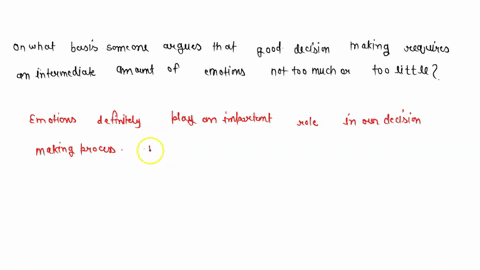 on what basis someone argues that good decision making requires
an intermediate amount of emotions not too much or too little?
Emotions definitely play an important role in our decision
making process.